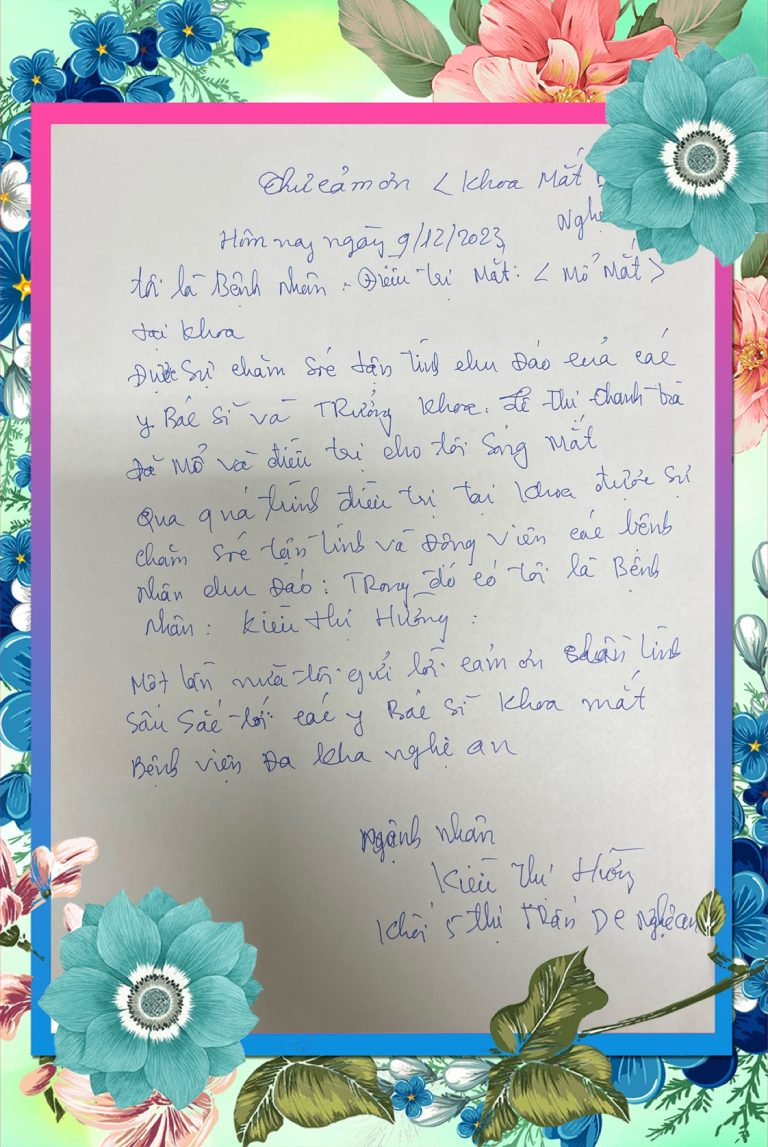 Thư cảm ơn < Khoa Mắt
Nghệ
Hôm nay ngày 9/12/2023
tôi là Bệnh nhân. Điều trị Mắt: < Mổ Mắt >
tại khoa
Được sự chăm sóc tận tình chu Đáo của các
y Bác sĩ và TRưởng khoa. Lê Thị Thanh Trà
Đã Mổ và điều trị cho tôi Sáng Mắt
Qua quá trình điều trị tại khoa được sự
chăm sóc tận tình và Động viên các bệnh
nhân chu Đáo: TRong đó có tôi là Bệnh
Nhân: Kiều Thị Hường:
Một lần nữa tôi gửi lời cảm ơn chân tình
Sâu Sắc tới các y Bác Sĩ khoa mắt
Bệnh viện Đa kha nghệ an
Bệnh nhân
Kiều Thị Hường
Khối 5 Thị Trấn DC Nghệ an